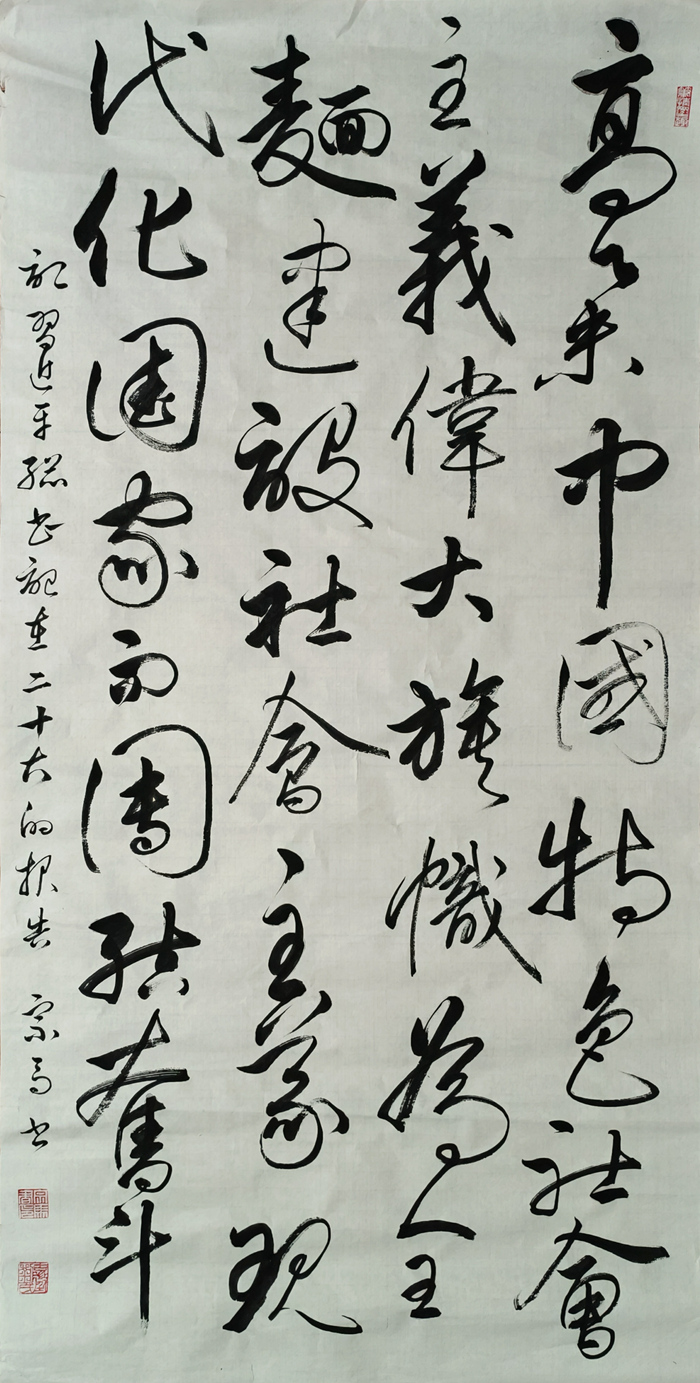 高舉中國特色社會
主義偉大旗幟為全
麵建設社會主義現
代化國家而團結奮斗
習近平總書記在二十大的报告 宗馬書